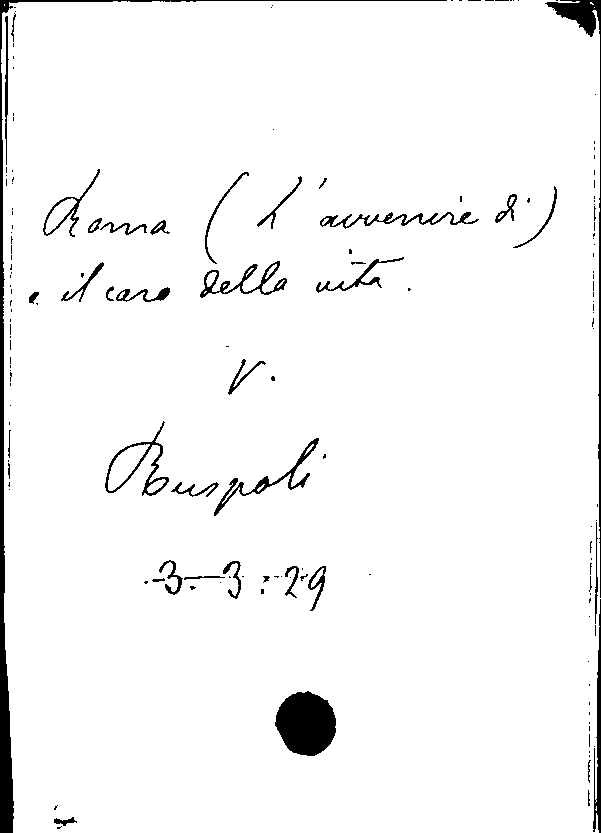 Roma (L'avvenire di)
e il caro della vita.
V.
Ruspoli
3.-3:29